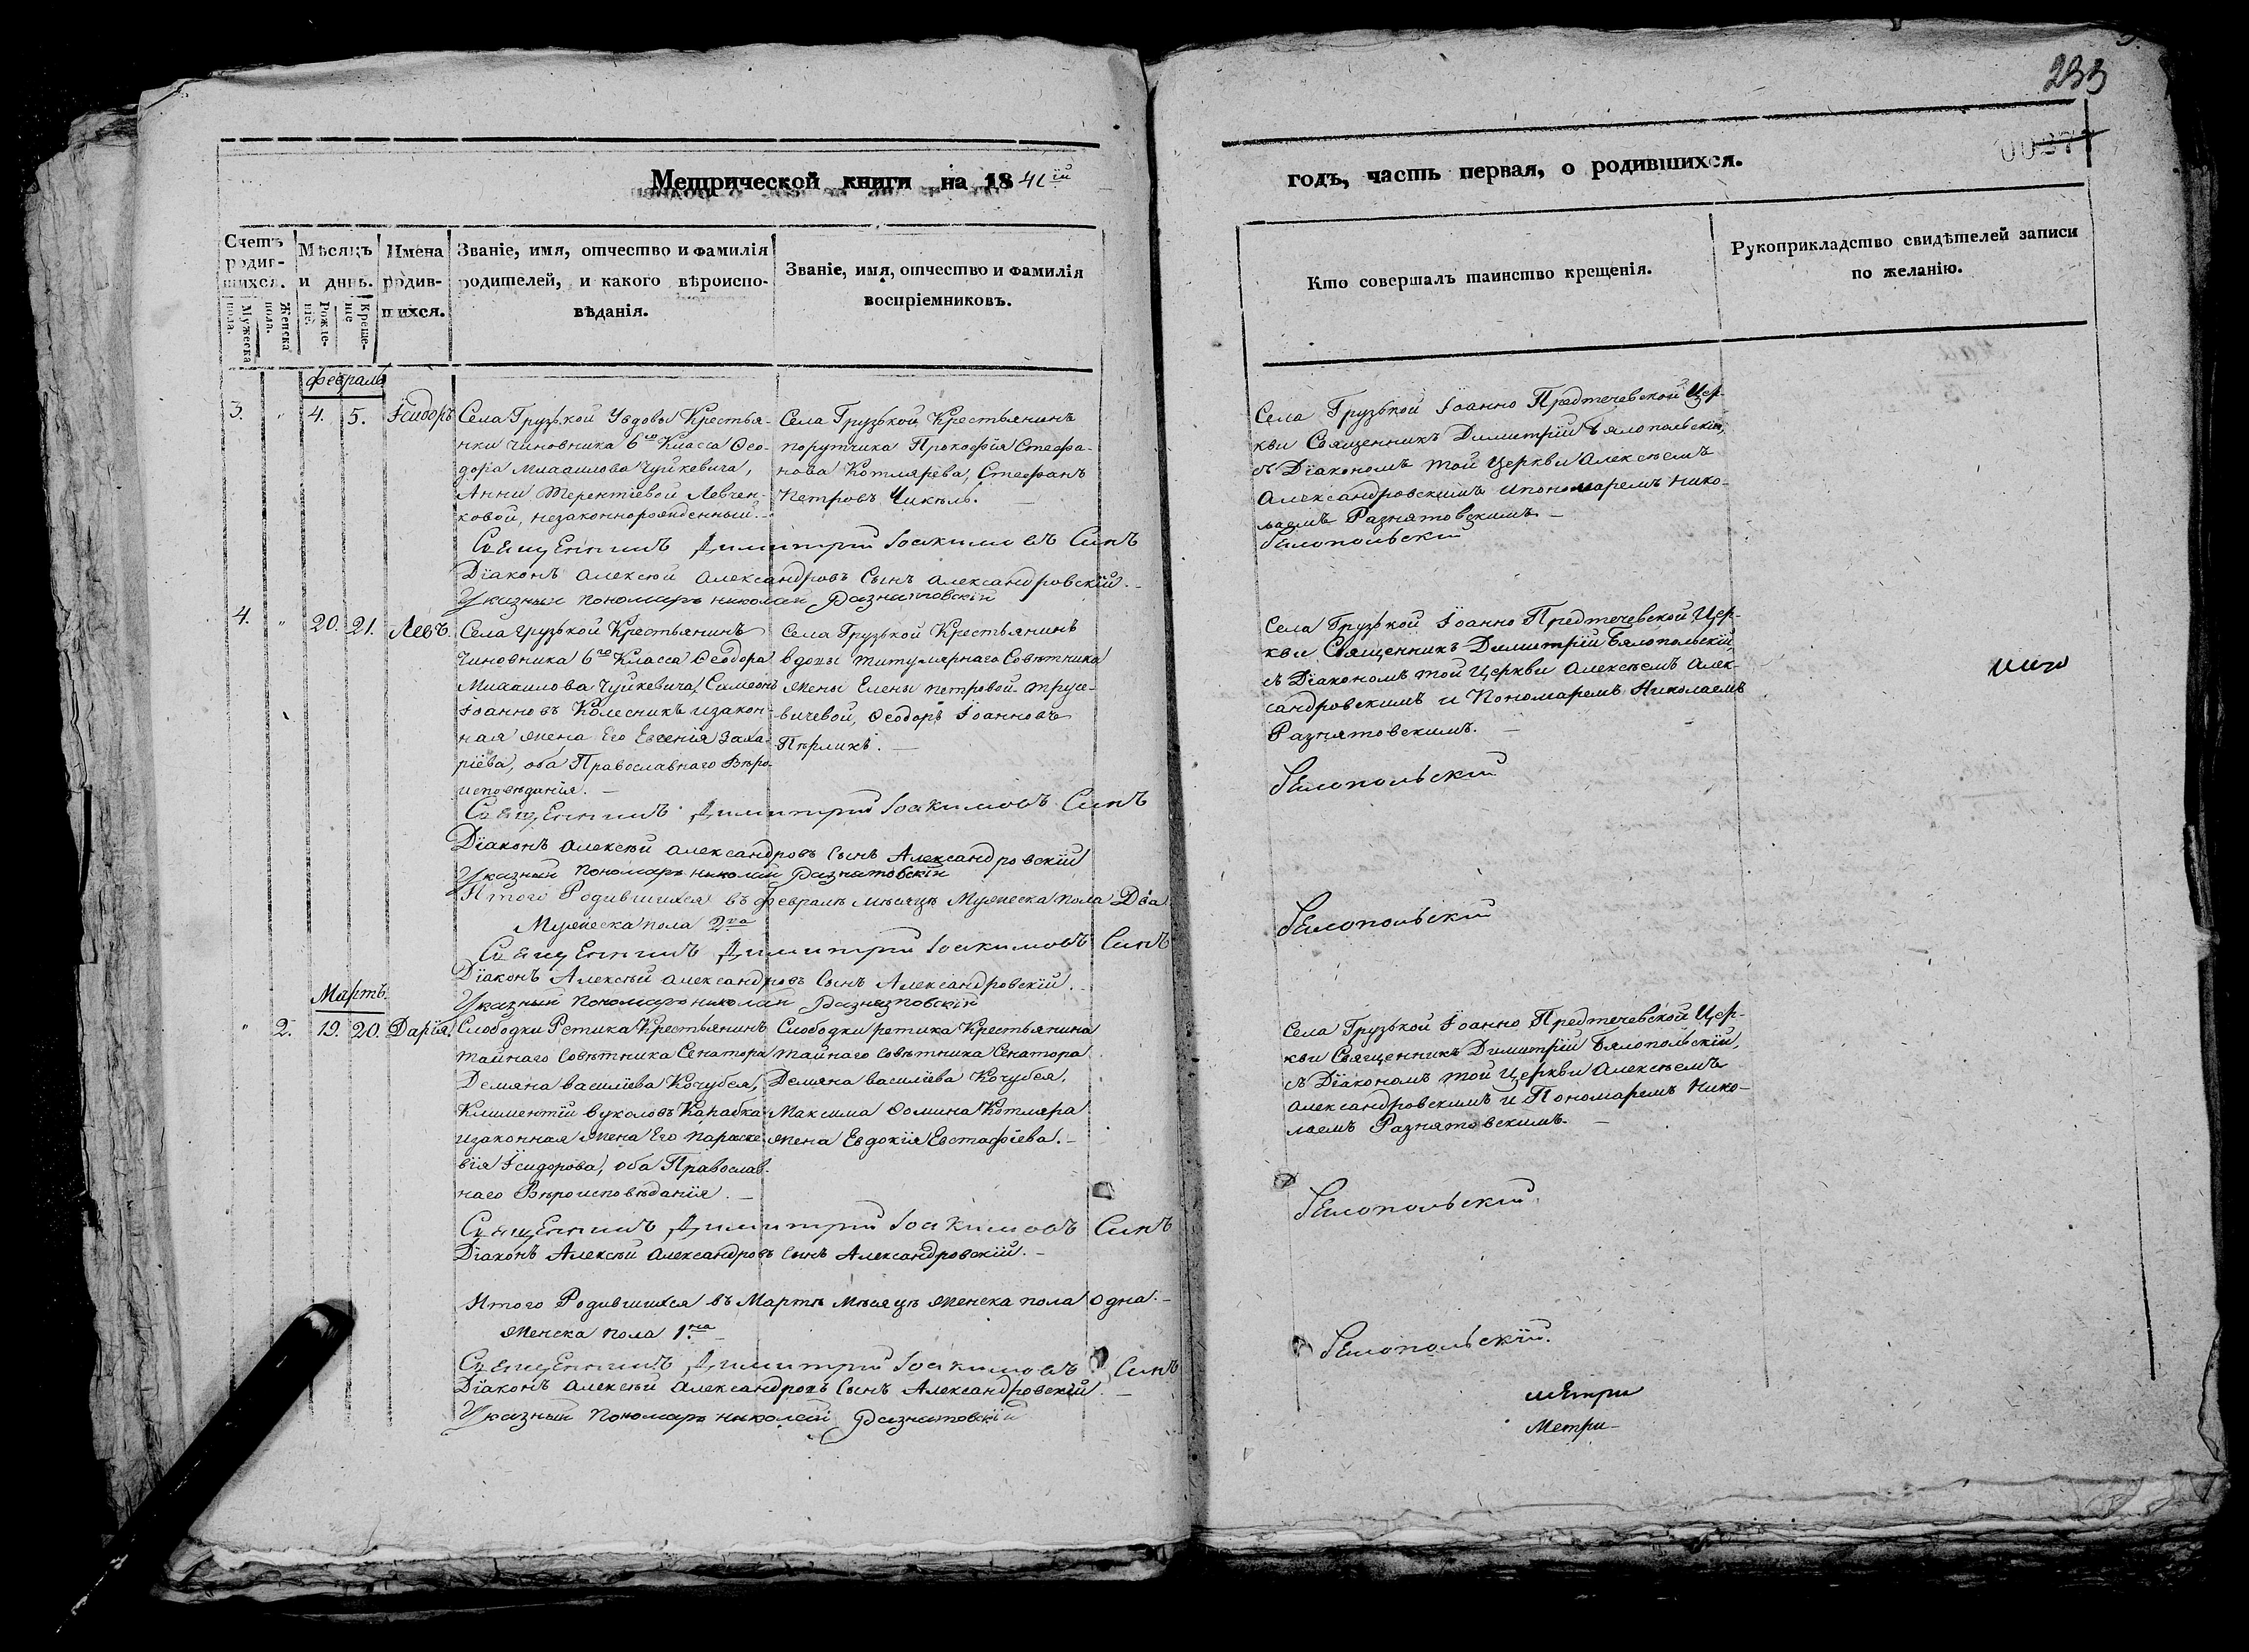 233
Метрической книги на 1841й
годъ, часть первая, о родившихся.
Счетъ родив-шихся.
Мужеска пола.
Женска пола.
Мѣсяцъ и день.
Рожде-ніе.
Креще-ніе
Имена родив-шихся.
Званіе, имя, отчество и фамилія
родителей, и какого вѣроиспо-
вѣданія.
Званіе, имя, отчество и фамилія
воспріемниковъ.
Кто совершалъ таинство крещенія.
Рукоприкладство свидѣтелей записи
по желанію.
Февраль
3. " 4. 5. Ісидоръ
Села Грузькой Удовы Крестья-
нки Чиновника 6го Класса Ѳео-
дора Михаилова Чуйкевича,
Анны Терентіевой Левчен-
ковой, незаконнорожденный.-
Села Грузькой Крестьянинъ
порутчика Прокофія Стефа-
нова Котлярева, Стефанъ
Петровъ Чикѣль. —
Села Грузькой Іоанно Предтечевской Цер-
кви Священникъ Димитрій Бялопольскій,
съ Діакономъ той Церкви Алексѣемъ
Александровскимъ и пономаремъ Нико-
лаемъ Разнятовскимъ —
Священникъ Димитрій Іоакимовъ Синъ
Бѣлопольскій
Діаконъ Алексѣй Александровъ Сынъ Александровскій.-
Указный пономарь Николай Разнятовскій
4. " 20. 21. Левъ.
Села Грузькой Крестьянинъ
Чиновника 6го Класса Ѳеодора
Михаилова Чуйкевича, Симеонъ
Іоанновъ Колесникъ и закон-
ная жена Его Евгенія Заха-
ріева, оба Православнаго Вѣро-
исповѣданія. —
Села Грузькой Крестьянинъ
вдовы титулярнаго Совѣтника
жены Елены Петровой
вичевой, Ѳеодоръ Іоанновъ
Пѣрликъ. —
Села Грузькой Іоанно Предтечевской Цер-
кви Священникъ Димитрій Бялопольскій,
съ Діакономъ той Церкви Алексѣемъ Алек-
сандровскимъ и Пономаремъ Николаемъ
Разнятовскимъ. —
Священникъ Димитрій Іоакимовъ Синъ
Бѣлопольскій
Діаконъ Алексѣй Александровъ Сынъ Александровскій
Указный пономарь Николай Разнятовскій
Итого Родившихся въ Февралѣ мѣсяцѣ Мужеска пола Два
Мужеска пола 2ва
Священникъ Димитрій Іоакимовъ Синъ
Бѣлопольскій
Діаконъ Алексѣй Александровъ Сынъ Александровскій.
Указный пономарь Николай Разнятовскій
Мартъ
" 2. 19. 20. Дарія.
Слободки Ретика Крестьянинъ
тайнаго Совѣтника Сенатора
Демяна Василіева Кочубея,
Климентій Вуколовъ Карабка
и законная жена Его Параске-
вія Ісидорова, оба Православ-
наго Вѣроисповѣданія. —
Слободки Ретика Крестьянина
тайнаго Совѣтника Сенатора
Демяна Василіева Кочубея,
Максима Ѳомина Котляра
жена Евдокія Евстафіева.-
Села Грузькой Іоанно Предтечевской Цер-
кви Священникъ Димитрій Бялопольскій,
съ Діакономъ той Церкви Алексѣемъ
Александровскимъ и Пономаремъ Нико-
лаемъ Разнятовскимъ. —
Священникъ Димитрій Іоакимовъ Синъ
Бѣлопольскій
Діаконъ Алексѣй Александровъ сынъ Александровскій.-
Итого Родившихся въ Мартѣ Мѣсяцѣ женска пола Одна.-
женска пола 1на
Священникъ Димитрій Іоакимовъ Синъ
Бѣлопольскій.
Діаконъ Алексѣй Александровъ Сынъ Александровскій.
Указный пономарь Николай Разнятовскій
метри
Метри-